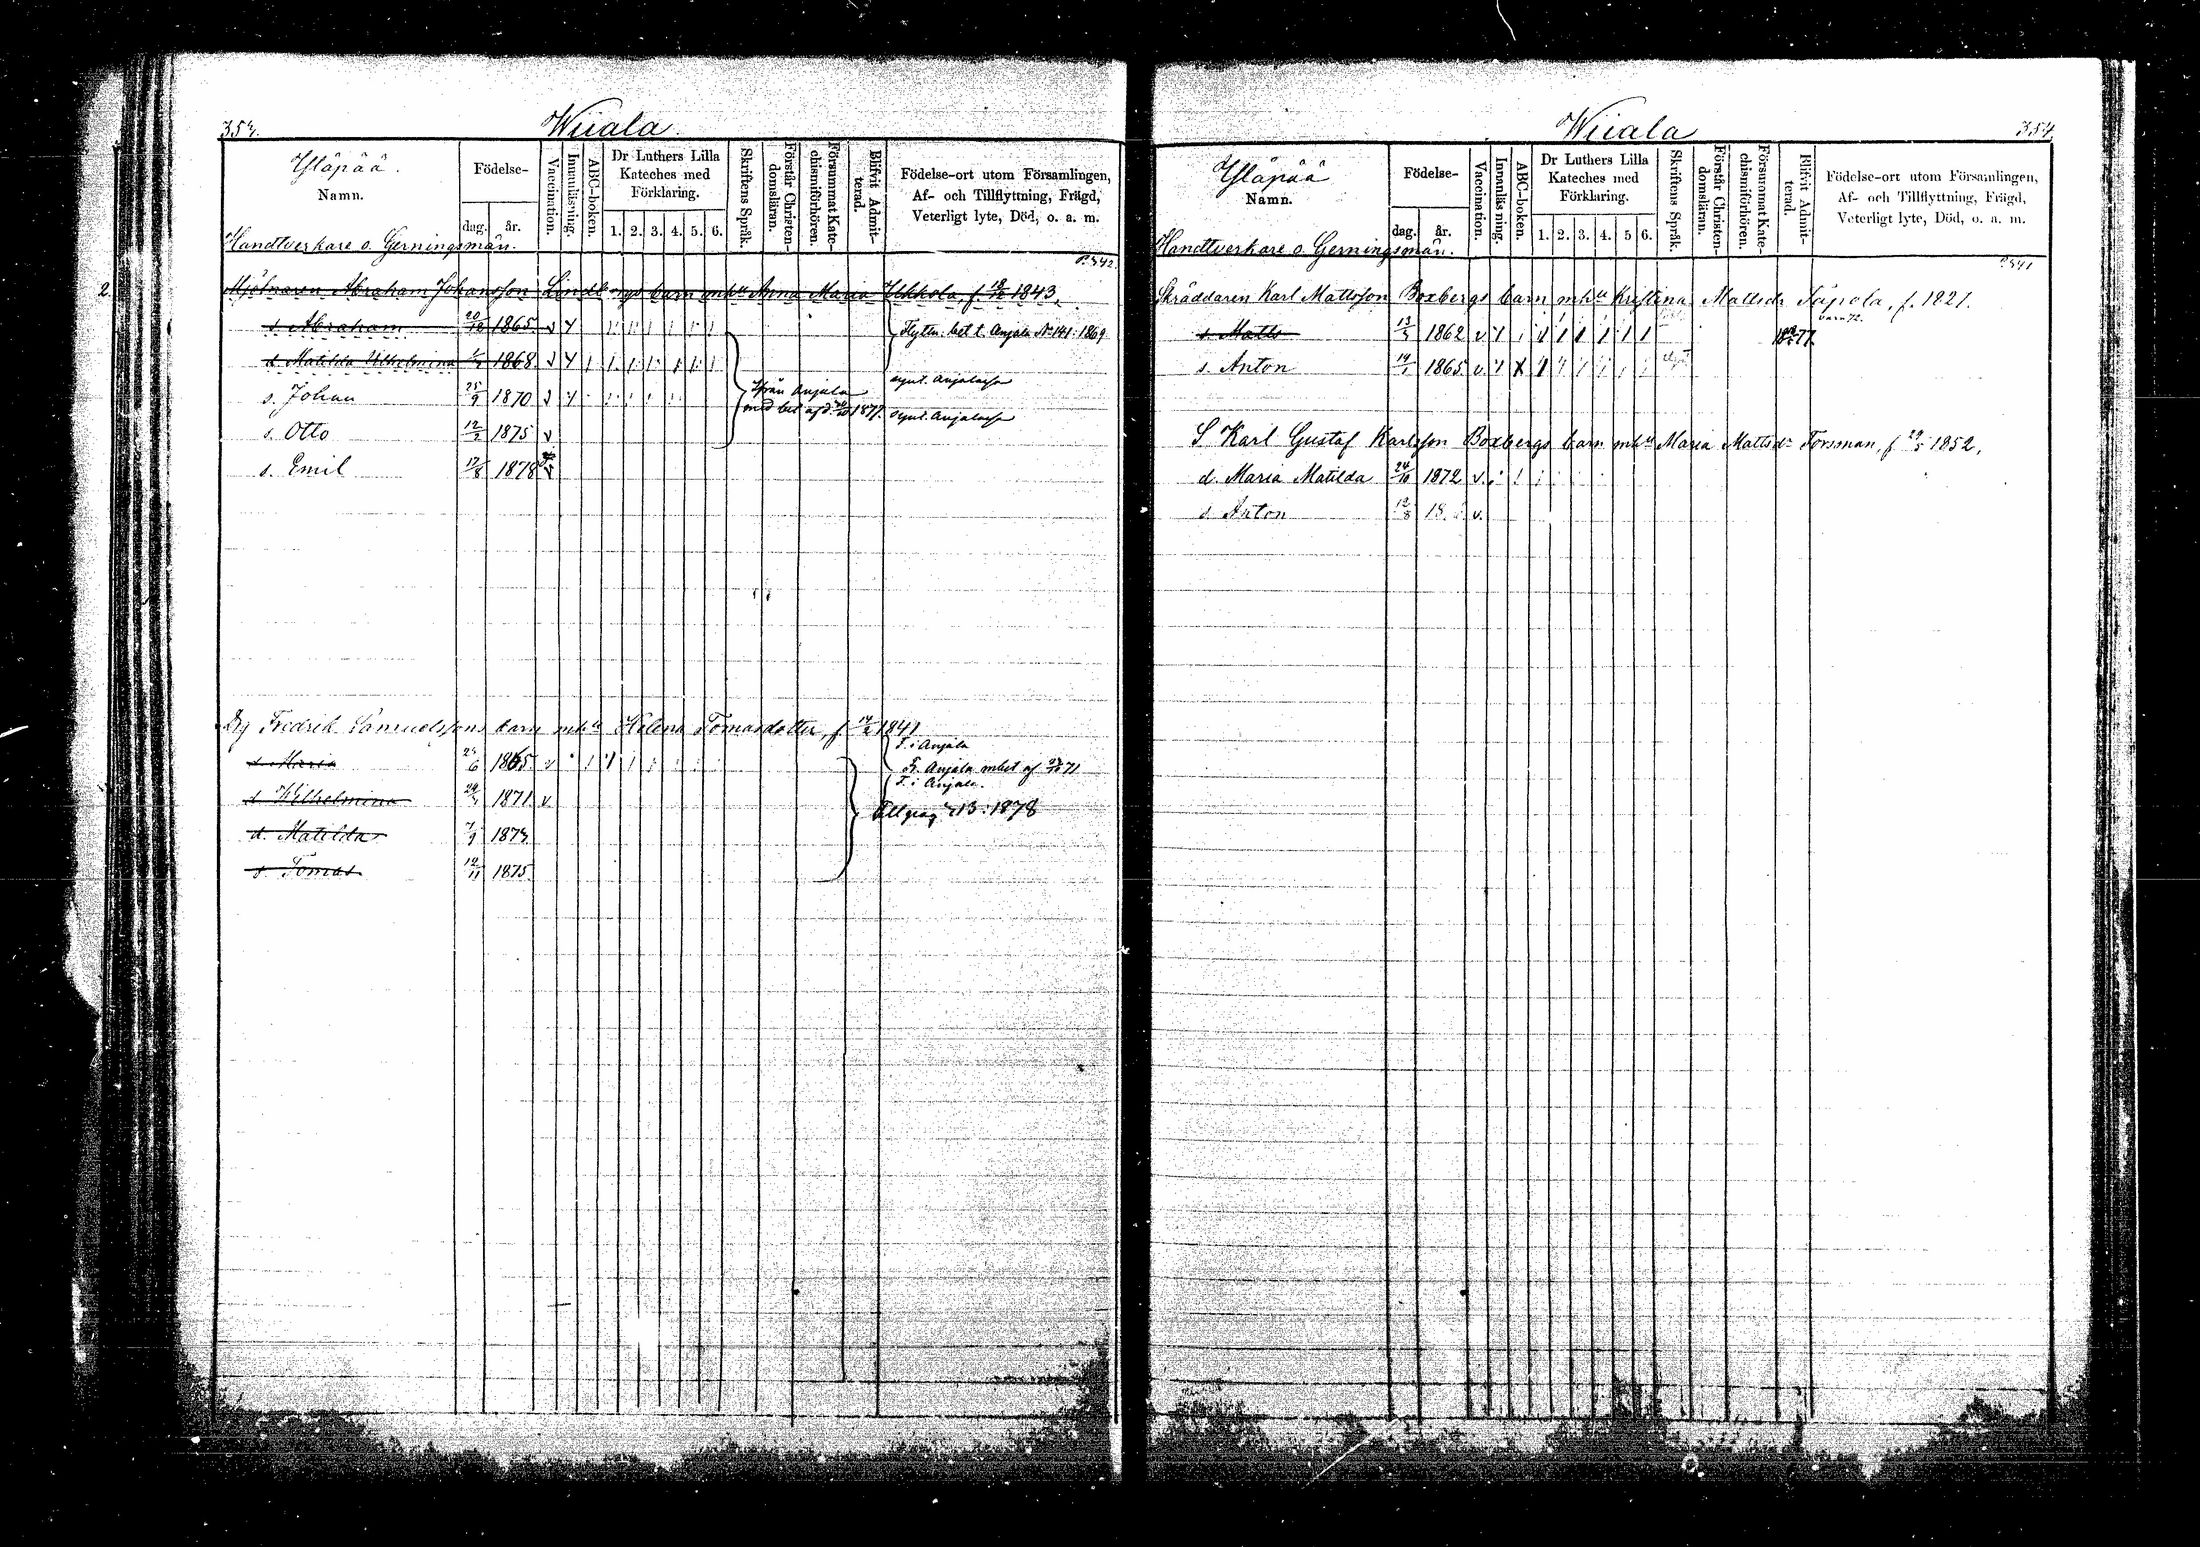 353.
Wiiala.
Yläpää.
Namn.
Födelse-
dag.
år.
Vaccination.
Innanläsning.
ABC-boken.
Dr Luthers Lilla
Kateches med
Förklaring.
1. 2. 3. 4. 5. 6.
Skriftens Språk.
Förstår Christen-
domsläran.
Försummat Kate-
chismiförhören.
Blifvit Admit-
terad.
Födelse-ort utom Församlingen,
Af- och Tillflyttning, Frägd,
Veterligt lyte, Död, o. a. m.
Handtverkare o. Gerningsmän.
P. 342.
2.
Mjölnaren Abraham Johansson Lindbergs barn m hu Anna Maria Ukkola, f 1843.
s. Abraham 20/12 1865 v
Flyttn. bet t. Anjala No 141. 1869
d. Matilda Wilhelmina 1868. v
s. Johan 25/9 1870 v
synt. Anjalassa
Ifrån Anjala
med bet af d. 1877.
s. Otto 12/2 1875 v
synt. Anjalassa
s. Emil 17/8 1878 v
Dg Fredrik Samuelssons barn m hu Helena Tomasdotter, f 1841
F. i Anjala
d. Maria 1865. v
Fr. Anjala mbet af 71
F. i Anjala.
d. Wilhelmina 1871 v
413. 1878
d. Matilda 7/9 1873
s. Tomas 12/11 1875.
Wiiala
354.
Yläpää
Namn.
Födelse-
dag.
år.
Vaccination.
Innanläsning.
ABC-boken.
Dr Luthers Lilla
Kateches med
Förklaring.
1. 2. 3. 4. 5 6.
Skriftens Språk.
Förstår Christen-
domsläran.
Försummat Kate-
chismiförhören.
Blifvit Admit-
terad.
Födelse-ort utom Församlingen,
Af- och Tillflyttning, Frägd,
Veterligt lyte, Död, o. a. m.
Handtverkare o. Gerningsmän.
P. 341
Skräddaren Karl Mattsson Boxbergs barn m hu Kristina Mattsdr Säpola, f. 1821.
s. Matts 13/5 1862 v. 1877.
s. Anton 14/1 1865 v.
S. Karl Gustaf Karlsson Boxbergs barn m hu Maria Mattsdr Forsman, f 29/5 1852.
d. Maria Matilda 24/10 1872 v.
s. Anton 12/8 v.